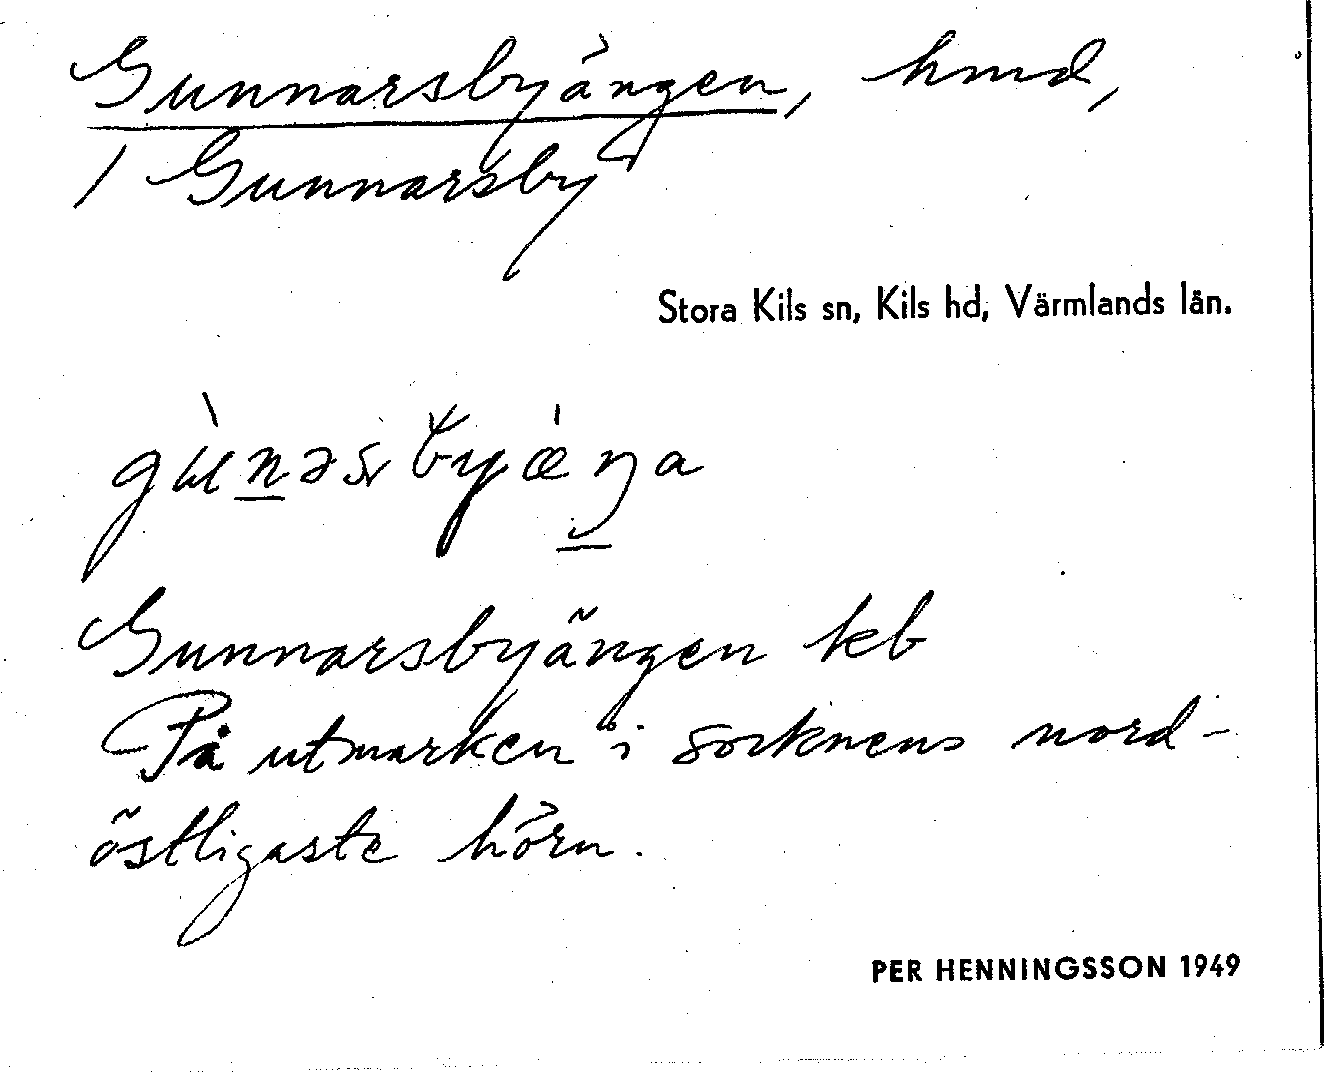 Gunnarsbyängen, hmd,
/ Gunnarsby
Stora Kils sn, Kils hd, Värmlands län.
Gunnarsbyängen kb
På utmarken i socknens nord-
östligaste hörn.
PER HENNINGSSON 1949